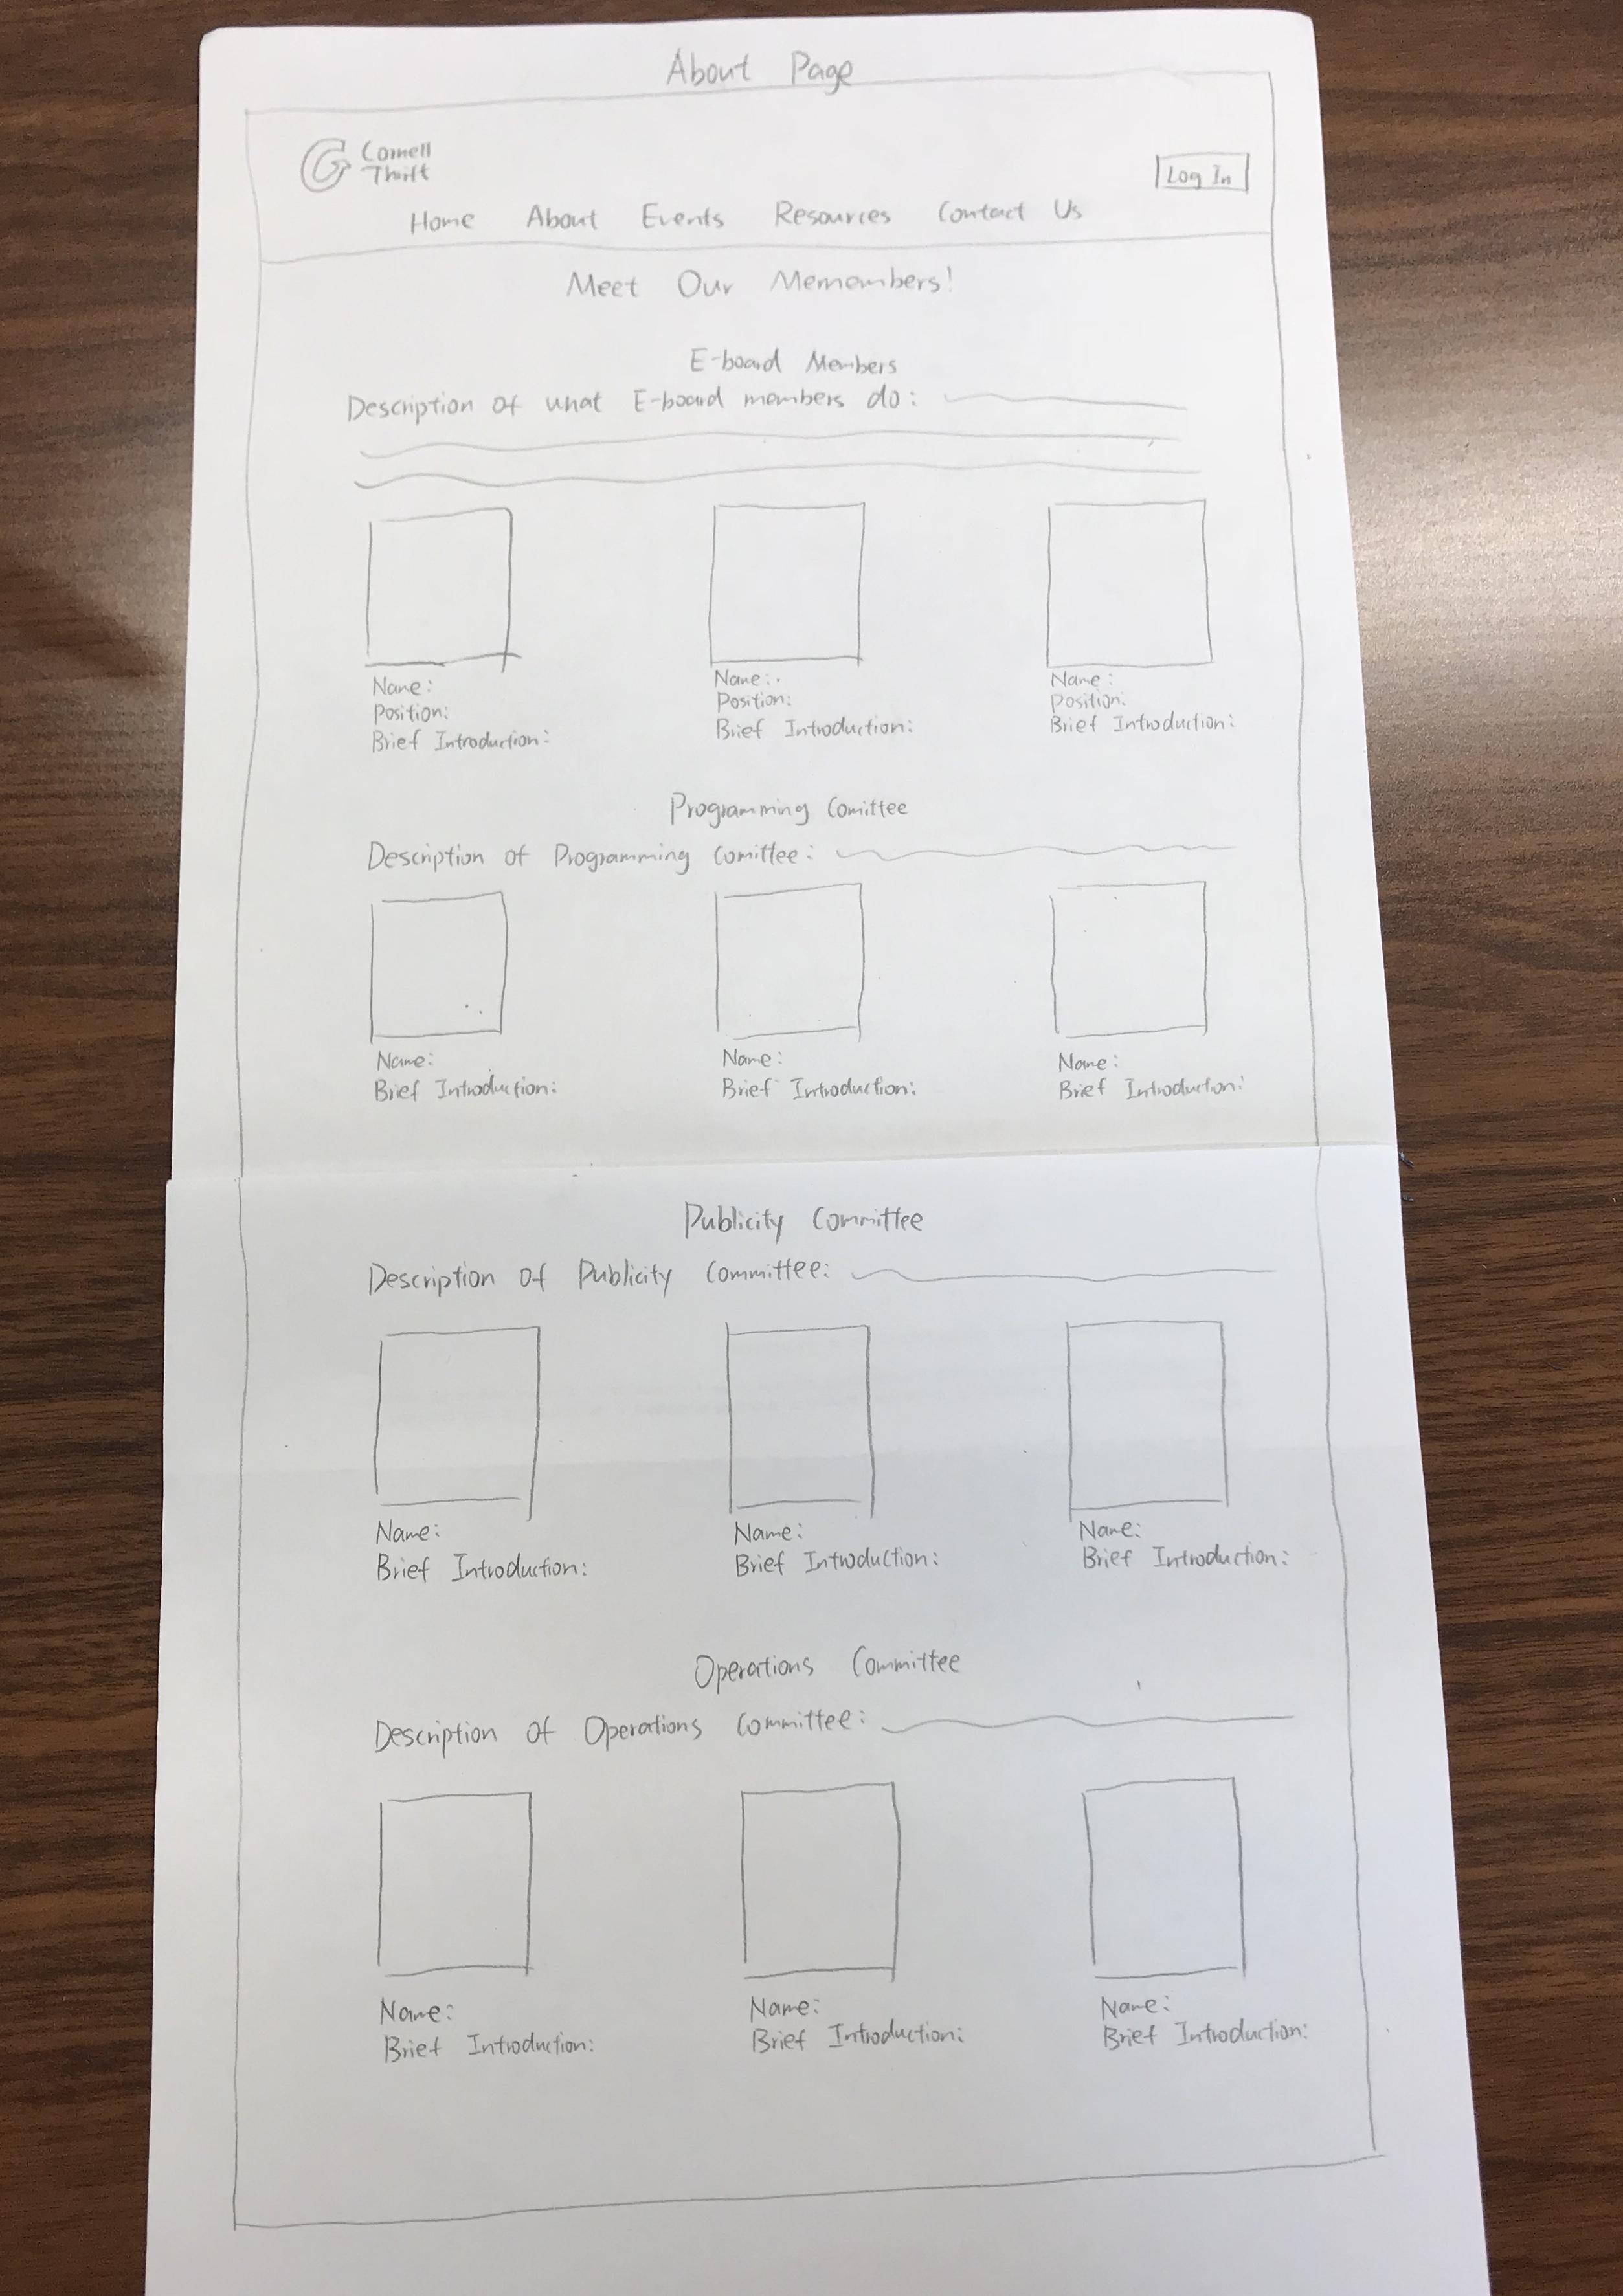 About Page
Cornell
Thrift
Log In
Home About Events Resources Contact Us
Meet Our Memembers!
E-board Members
Description of what E-board members do:
Name: Name: Name:
Position: Position: Position:
Brief Introduction: Brief Introduction: Brief Introduction:
Programming Comittee
Description of Programming Comittee:
Name: Name: Name:
Brief Introduction: Brief Introduction: Brief Introduction:
Publicity Committee
Description of Publicity Committee:
Name: Name: Name:
Brief Introduction: Brief Introduction: Brief Introduction:
Operations Committee
Description of Operations Committee:
Name: Name: Name:
Brief Introduction: Brief Introduction: Brief Introduction: